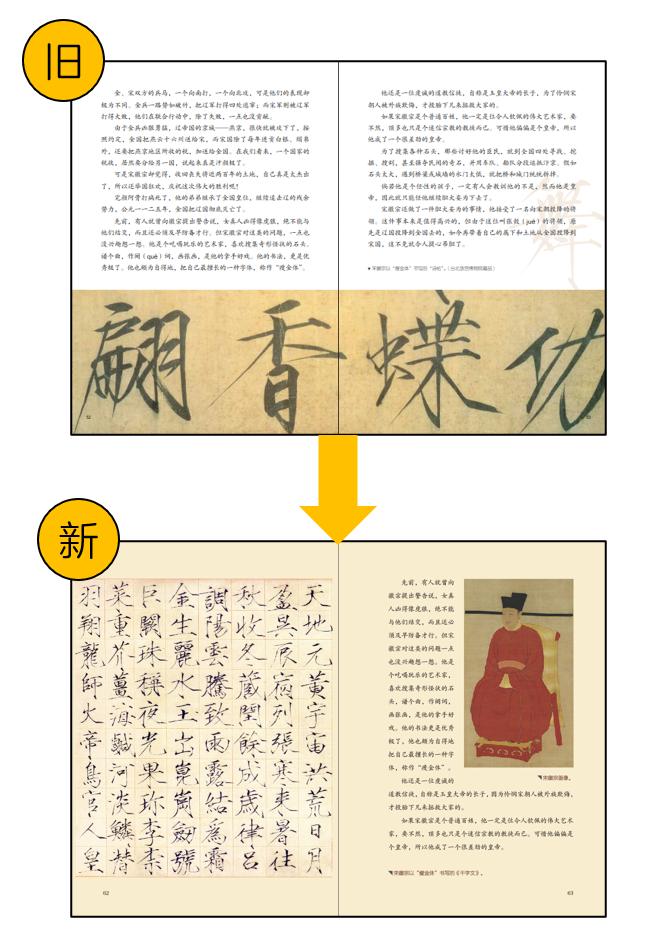 旧
金、宋双方的兵马，一个向南打，一个向北攻，可是他们的表现却
极为不同。金兵一路势如破竹，把辽军打得四处逃窜；而宋军则被辽军
打得大败，他们在联合行动中，除了失败，一点也没贡献。
由于金兵凶狠勇猛，辽帝国的京城——燕京，很快就被攻下了，按
照约定，金国把燕云十六州送给宋，而宋国除了每年进贡白银、绢帛
外，还要把燕京地区所收的税，加送给金国。在我们看来，一个国家的
税收，居然要分给另一国，说起来真是汗颜极了。
可是宋徽宗却觉得，收回丧失将近两百年的土地，自己真是太杰出
了，所以还举国狂欢，庆祝这次伟大的胜利呢！
完颜阿骨打病死了，他的弟弟继承了金国皇位，继续追击辽的残余
势力，公元一一二五年，金国把辽国彻底灭亡了。
先前，有人就曾向徽宗提出警告说，女真人凶得像虎狼，绝不能与
他们结交，而且还必须及早防备才行。但宋徽宗对这类的问题，一点也
没兴趣想一想。他是个吃喝玩乐的艺术家，喜欢搜集奇形怪状的石头。
谱个曲，作阕（què）词，画张画，是他的拿手好戏。他的书法，更是优
秀极了。他也颇为自得地，把自己最擅长的一种字体，称作“瘦金体”。
52
他还是一位虔诚的道教信徒，自称是玉皇大帝的长子，为了怜悯宋
朝人被外族欺侮，才投胎下凡来拯救大家的。
如果宋徽宗是个普通百姓，他一定是位令人钦佩的伟大艺术家，要
不然，顶多也只是个迷信宗教的教徒而已。可惜他偏偏是个皇帝，所以
他成了一个很差劲的皇帝。
为了搜集各种石头，那些讨好他的臣民，就到全国四处寻找、挖
掘、搜刮，甚至强夺民间的奇石，并用车队、船队分段运抵汴京。假如
石头太大，遇到桥梁或城墙的水门太低，就把桥和城门统统拆掉。
倘若他是个任性的孩子，一定有人会教训他的不是，然而他是皇
帝，因此就只能任他继续胆大妄为下去了。
宋徽宗还做了一件胆大妄为的事情，他接受了一名向宋朝投降的将
领。这件事本来是值得高兴的，但由于这位叫张觉（jué）的将领，原
先是辽国投降到金国去的，如今再带着自己的属下和土地从金国投降到
宋国，这不免就令人提心吊胆了。
宋徽宗以“瘦金体”书写的“诗帖”。（台北故宫博物院藏品）
翩
香
蝶
新
天地元黄宇宙洪荒日月
盈昃辰宿列張寒来暑往
秋收冬藏閏餘成歲律呂
調陽雲騰致雨露結為霜
金生麗水玉出崑崗劒號
巨闕珠稱夜光果珎李柰
菜重芥薑海鹹河淡鱗
羽翔龍師火帝鳥官人皇
62
先前，有人就曾向
徽宗提出警告说，女真
人凶得像虎狼，绝不能
与他们结交，而且还必
须及早防备才行。但宋
徽宗对这类的问题一点
也没兴趣想一想。他是
个吃喝玩乐的艺术家，
喜欢搜集奇形怪状的石
头，谱个曲，作阕词，
画张画，是他的拿手好
戏。他的书法更是优秀
极了，他也颇为自得地
把自己最擅长的一种字
体，称作“瘦金体”。
他还是一位虔诚的
道教信徒，自称是玉皇大帝的长子，因为怜悯宋朝人被外族欺侮，
才投胎下凡来拯救大家的。
如果宋徽宗是个普通百姓，他一定是位令人钦佩的伟大艺术
家，要不然，顶多也只是个迷信宗教的教徒而已。可惜他偏偏是
个皇帝，所以他成了一个很差劲的皇帝。
宋徽宗画像。
宋徽宗以“瘦金体”书写的《千字文》。
63